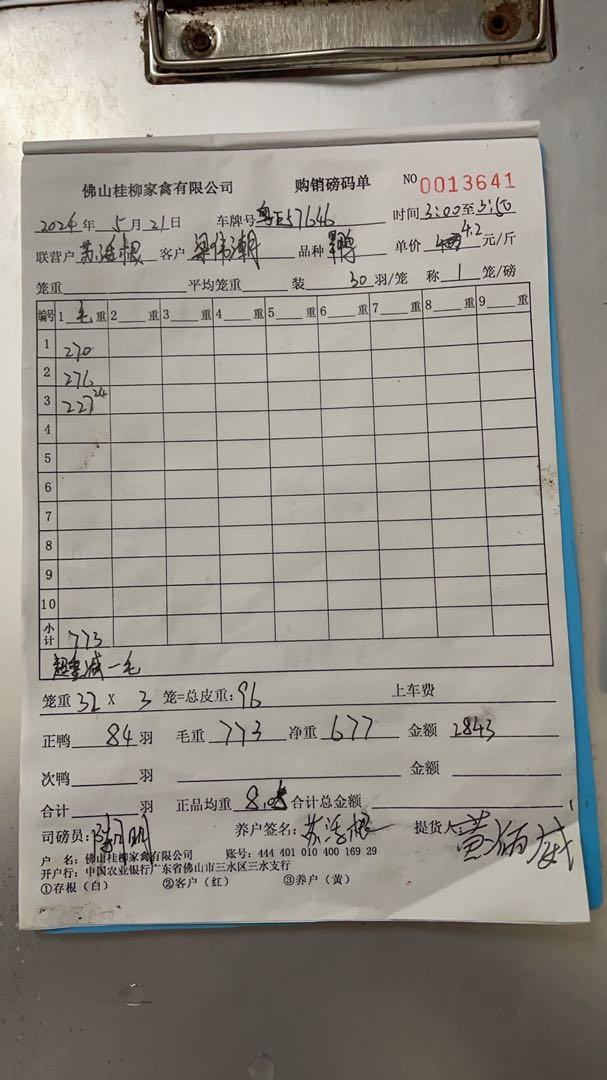 佛山桂柳家禽有限公司 购销磅码单 NO 0013641
2024年 5月21日 车牌号粤E57646 时间3:00至3:50
联营户 苏活根 客户 梁伟潮 品种 单价 4.2 元/斤
笼重 平均笼重 装 30 羽/笼 称 1 笼/磅
编号 1 毛 重 2 重 3 重 4 重 5 重 6 重 7 重 8 重 9 重
1 270
2 276
3 227 24
4
5
6
7
8
9
10
小计 773
超重减一毛
笼重 32 X 3 笼=总皮重: 96 上车费
正鸭 84 羽 毛重 773 净重 677 金额 2843
次鸭 羽 金额
合计 羽 正品均重 合计总金额
司磅员: 养户签名: 苏活根 提货人 黄炳成
户 名: 佛山桂柳家禽有限公司 账号: 444 401 010 400 169 29
开户行: 中国农业银行广东省佛山市三水区三水支行
①存根（白） ②客户（红） ③养户（黄）